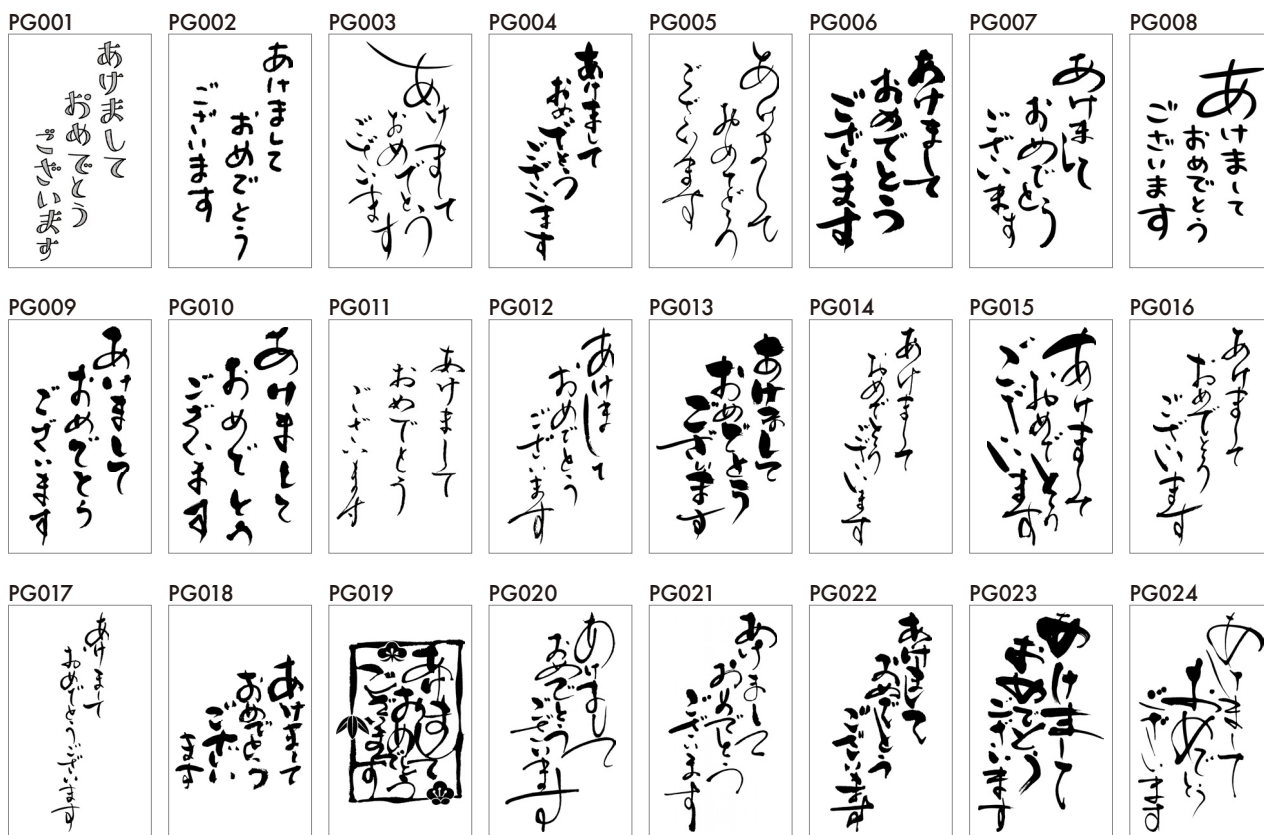 PG001
あけまして
おめでとう
ございます
PG002
あけまして
おめでとう
ございます
PG003
あけまして
おめでとう
ございます
PG004
あけまして
おめでとう
ございます
PG005
あけまして
おめでとう
ございます
PG006
あけまして
おめでとう
ございます
PG007
あけまして
おめでとう
ございます
PG008
あけまして
おめでとう
ございます
PG009
あけまして
おめでとう
ございます
PG010
あけまして
おめでとう
ございます
PG011
あけまして
おめでとう
ございます
PG012
あけまして
おめでとう
ございます
PG013
あけまして
おめでとう
ございます
PG014
あけまして
おめでとう
ございます
PG015
あけまして
おめでとう
ございます
PG016
あけまして
おめでとう
ございます
PG017
あけまして
おめでとうございます
PG018
あけまして
おめでとう
ござい
ます
PG019
あけまして
おめでとう
ございます
PG020
あけまして
おめでとう
ございます
PG021
あけまして
おめでとう
ございます
PG022
あけまして
おめでとう
ございます
PG023
あけまして
おめでとう
ございます
PG024
あけまして
おめでとう
ございます